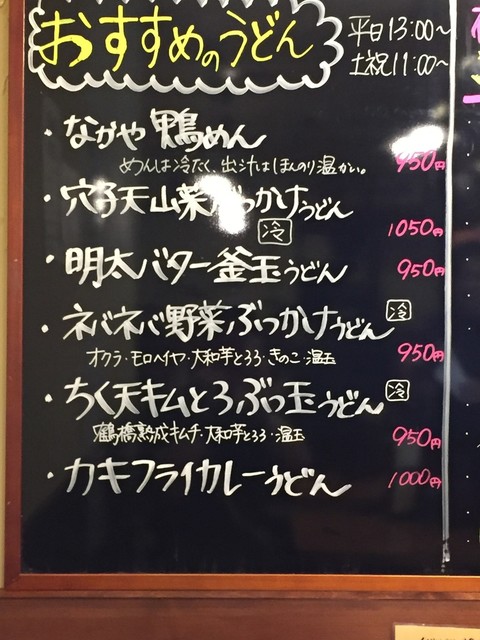 おすすめのうどん
平日13:00〜
土祝11:00〜
・ながや 鴨めん
めんは冷たく、出汁はほんのり温かい。
950円
・穴子天山菜ぶっかけうどん
冷
1050円
・明太バター釜玉うどん
950円
・ネバネバ野菜ぶっかけうどん 冷
オクラ・モロヘイヤ・大和芋とろろ・きのこ・温玉
950円
・ちく天キムとろぶっ玉うどん 冷
鶴橋熟成キムチ・大和芋とろろ・温玉
950円
・カキフライカレーうどん
1000円